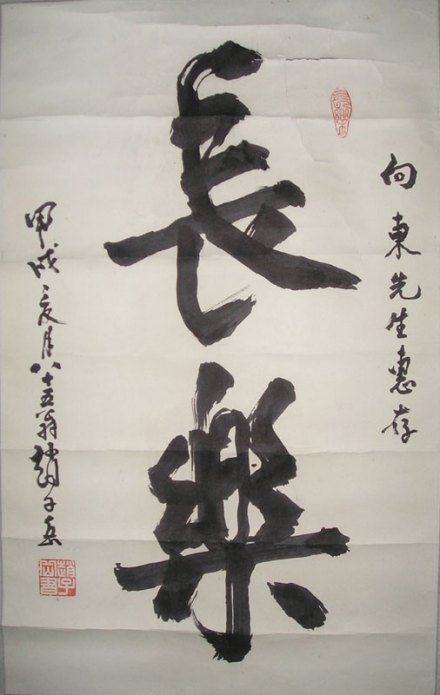 向東先生惠存
長樂
甲戌夏月八十五翁趙子岳